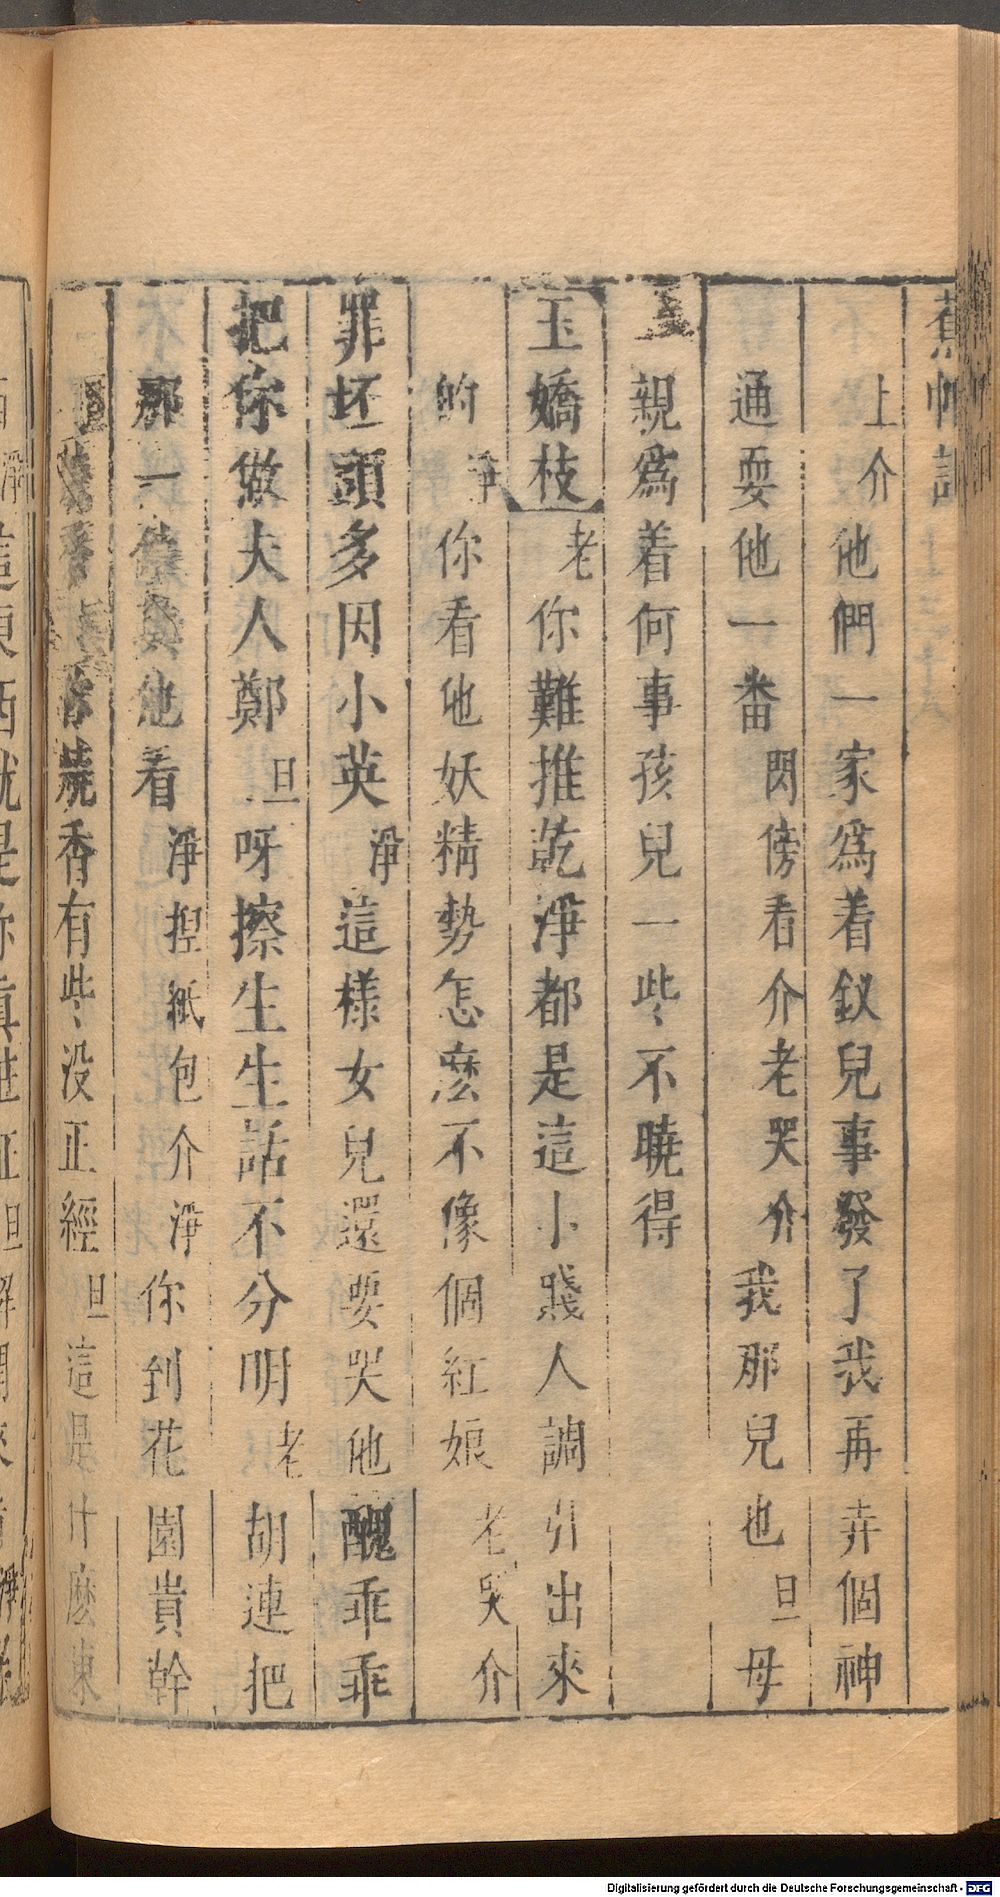 蕉帕記
上介他們一家爲着釵兒事發了我再弄個神
通耍他一番閃傍看介老哭介我那兒也旦母
親爲着何事孩兒一些不曉得
玉嬌枝老你難推乾淨都是這小賤人調引出來
的淨你看他妖精勢怎麽不像個紅娘老哭介
罪坯頭多因小英淨這樣女兒還要哭他醜乖乖
把你做夫人鄭旦呀擦生生話不分明老胡連把
那一條與他看淨捏紙包介淨你到花園貴幹
燒香有些没正經旦這是什麽東
Digitalisierung gefördert durch die Deutsche Forschungsgemeinschaft - DFG